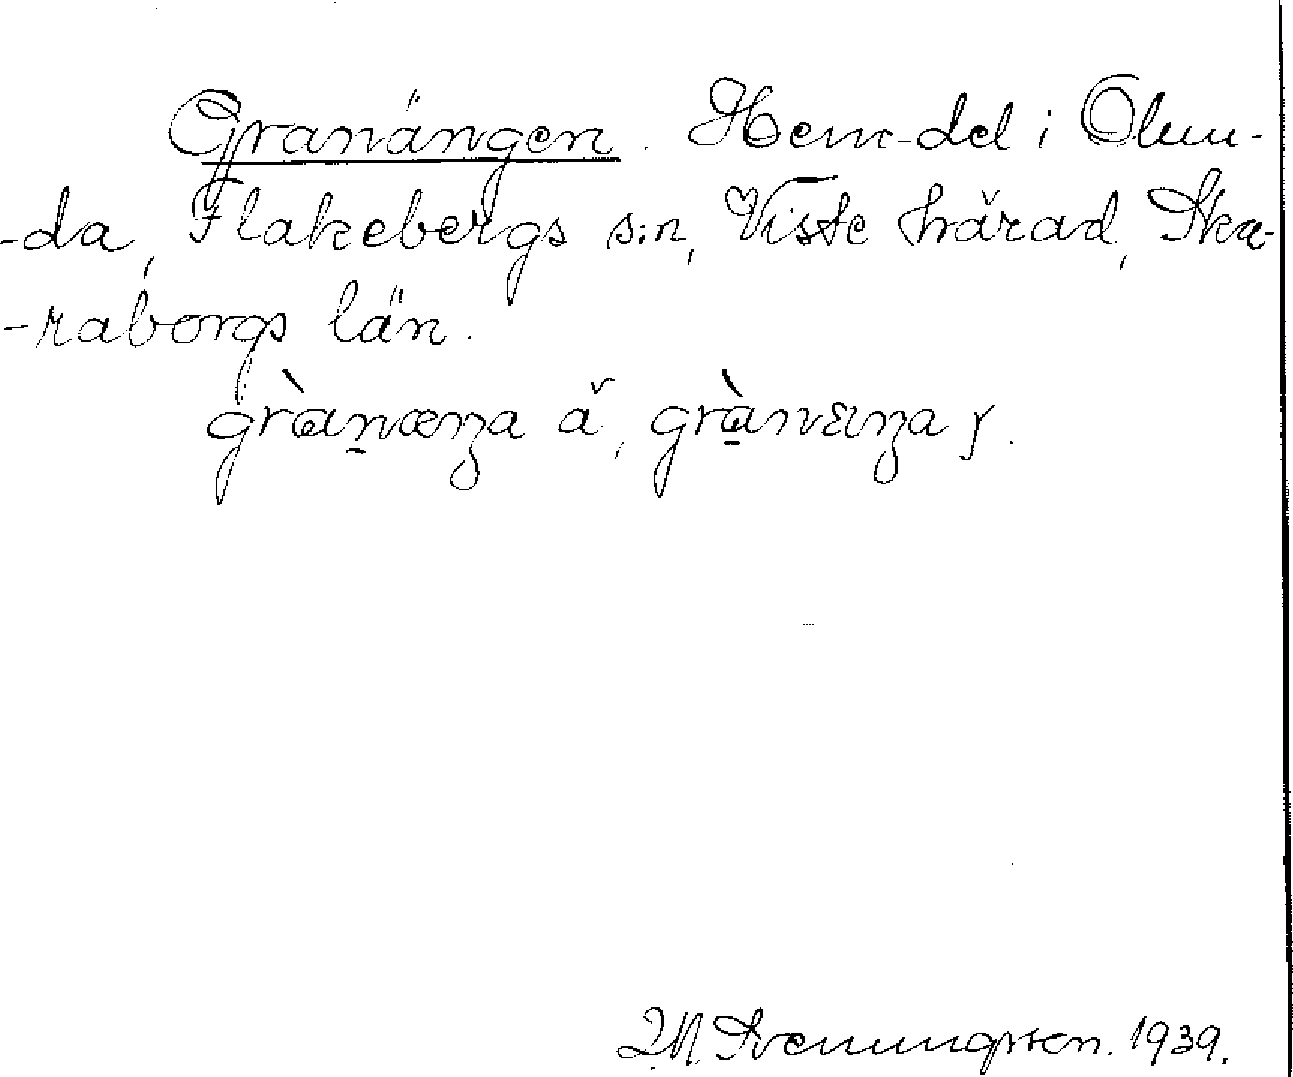 Granängen. Hem-del i Olun-
-da, Flakebergs s:n, Viste härad, Ska-
-raborgs län.
grànæŋa ǎ, grànɛŋa y.
Svenungsson. 1939.